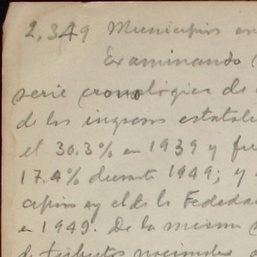 2,349 Municipios en
Examinando
serie cronológica de
de los ingresos estatale
el 30.3% en 1939 y fu
17.4% durante 1949; y
cipios y el de la Federa
en 1949. De la misma
de tributos nacionales